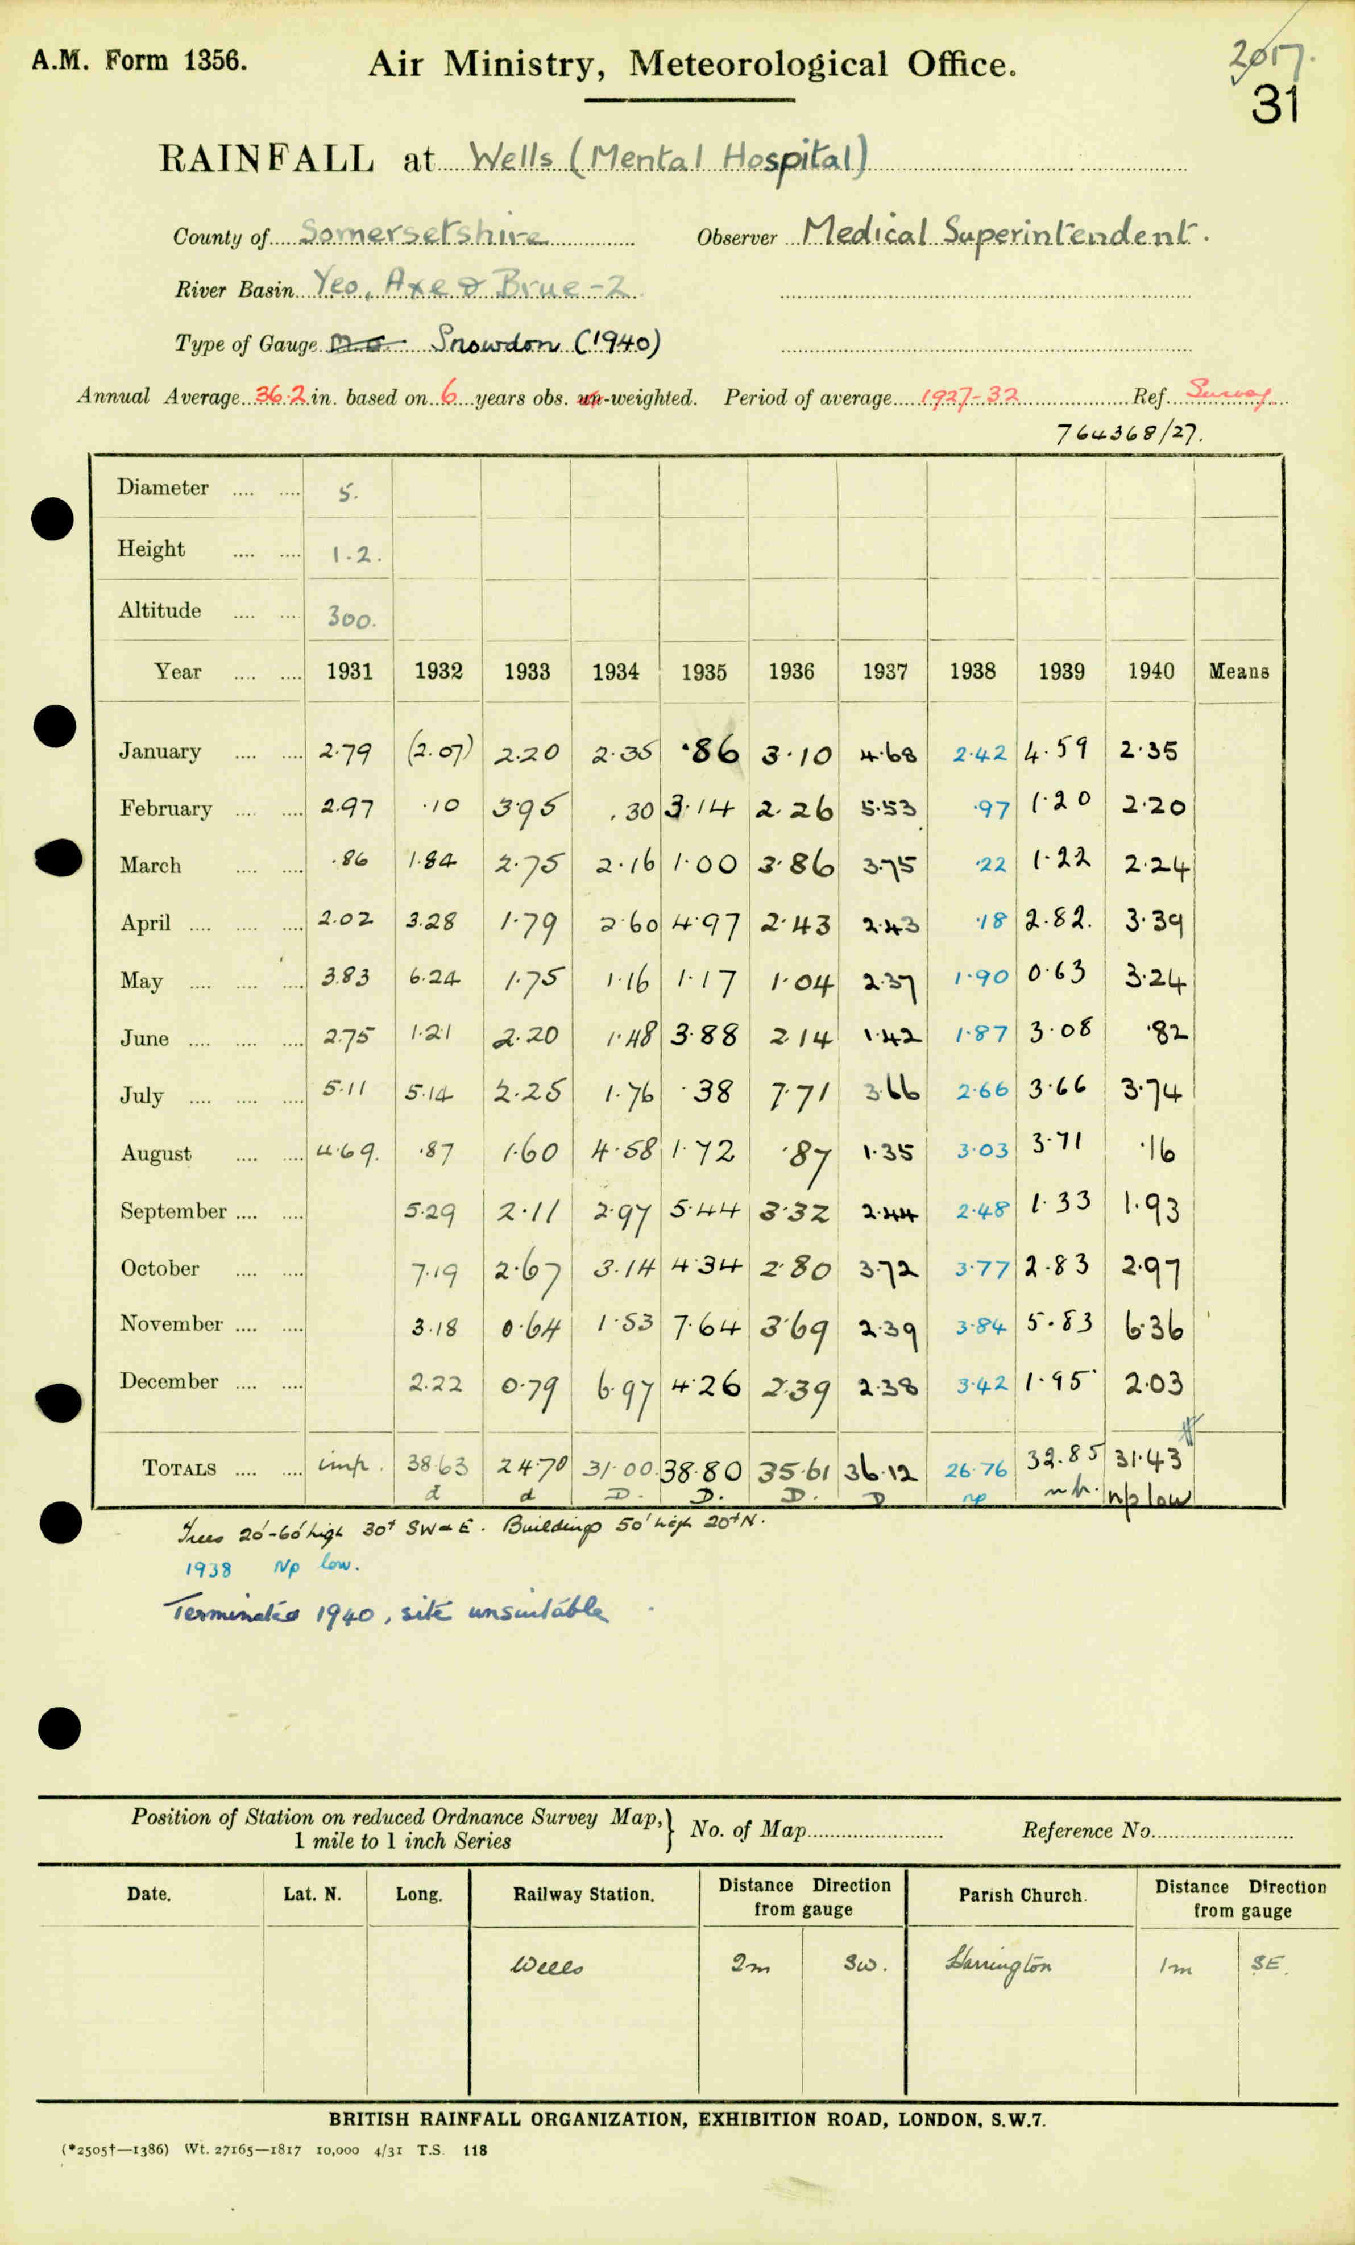 A.M. Form 1356. Air Ministry, Meteorological Office. 2017.
31
RAINFALL at Wells (Mental Hospital)
County of Somersetshire Observer Medical Superintendent.
River Basin Yeo, Axe & Brue-2
Type of Gauge M.O. Snowdon (1940)
Annual Average 36.2 in. based on 6 years obs. un-weighted. Period of average 1927-32 Ref. Survey
764368/27.
Diameter .... .... 5.
Height .... .... 1.2.
Altitude .... .... 300.
Year .... .... 1931 1932 1933 1934 1935 1936 1937 1938 1939 1940 Means
January .... .... 2.79 (2.07) 2.20 2.35 .86 3.10 4.68 2.42 4.59 2.35
February .... .... 2.97 .10 3.95 .30 3.14 2.26 5.53 .97 1.20 2.20
March .... .... .86 1.84 2.75 2.16 1.00 3.86 3.75 .22 1.22 2.24
April .... .... .... 2.02 3.28 1.79 2.60 4.97 2.43 2.43 .18 2.82. 3.39
May .... .... .... 3.83 6.24 1.75 1.16 1.17 1.04 2.37 1.90 0.63 3.24
June .... .... .... 2.75 1.21 2.20 1.48 3.88 2.14 1.42 1.87 3.08 .82
July .... .... .... 5.11 5.14 2.25 1.76 .38 7.71 3.66 2.66 3.66 3.74
August .... .... 4.69. .87 1.60 4.58 1.72 .87 1.35 3.03 3.71 .16
September .... .... 5.29 2.11 2.97 5.44 3.32 2.44 2.48 1.33 1.93
October .... .... 7.19 2.67 3.14 4.34 2.80 3.72 3.77 2.83 2.97
November .... .... 3.18 0.64 1.53 7.64 3.69 2.39 3.84 5.83 6.36
December .... .... 2.22 0.79 6.97 4.26 2.39 2.38 3.42 1.95 2.03
TOTALS .... .... imp. 38.63 24.70 31.00 38.80 35.61 36.12 26.76 32.85 31.43
d d D. D. D. D np np low
Trees 20'-60' high 30+ SW-E. Buildings 50' high 20+N.
1938 Np low.
Terminated 1940, site unsuitable
Position of Station on reduced Ordnance Survey Map,} No. of Map Reference No.
1 mile to 1 inch Series
Date. Lat. N. Long. Railway Station. Distance Direction from gauge Parish Church. Distance Direction from gauge
Wells 2m SW. 1m SE.
BRITISH RAINFALL ORGANIZATION, EXHIBITION ROAD, LONDON, S.W.7.
(*2505†—1386) Wt. 27165—1817 10,000 4/31 T.S. 118